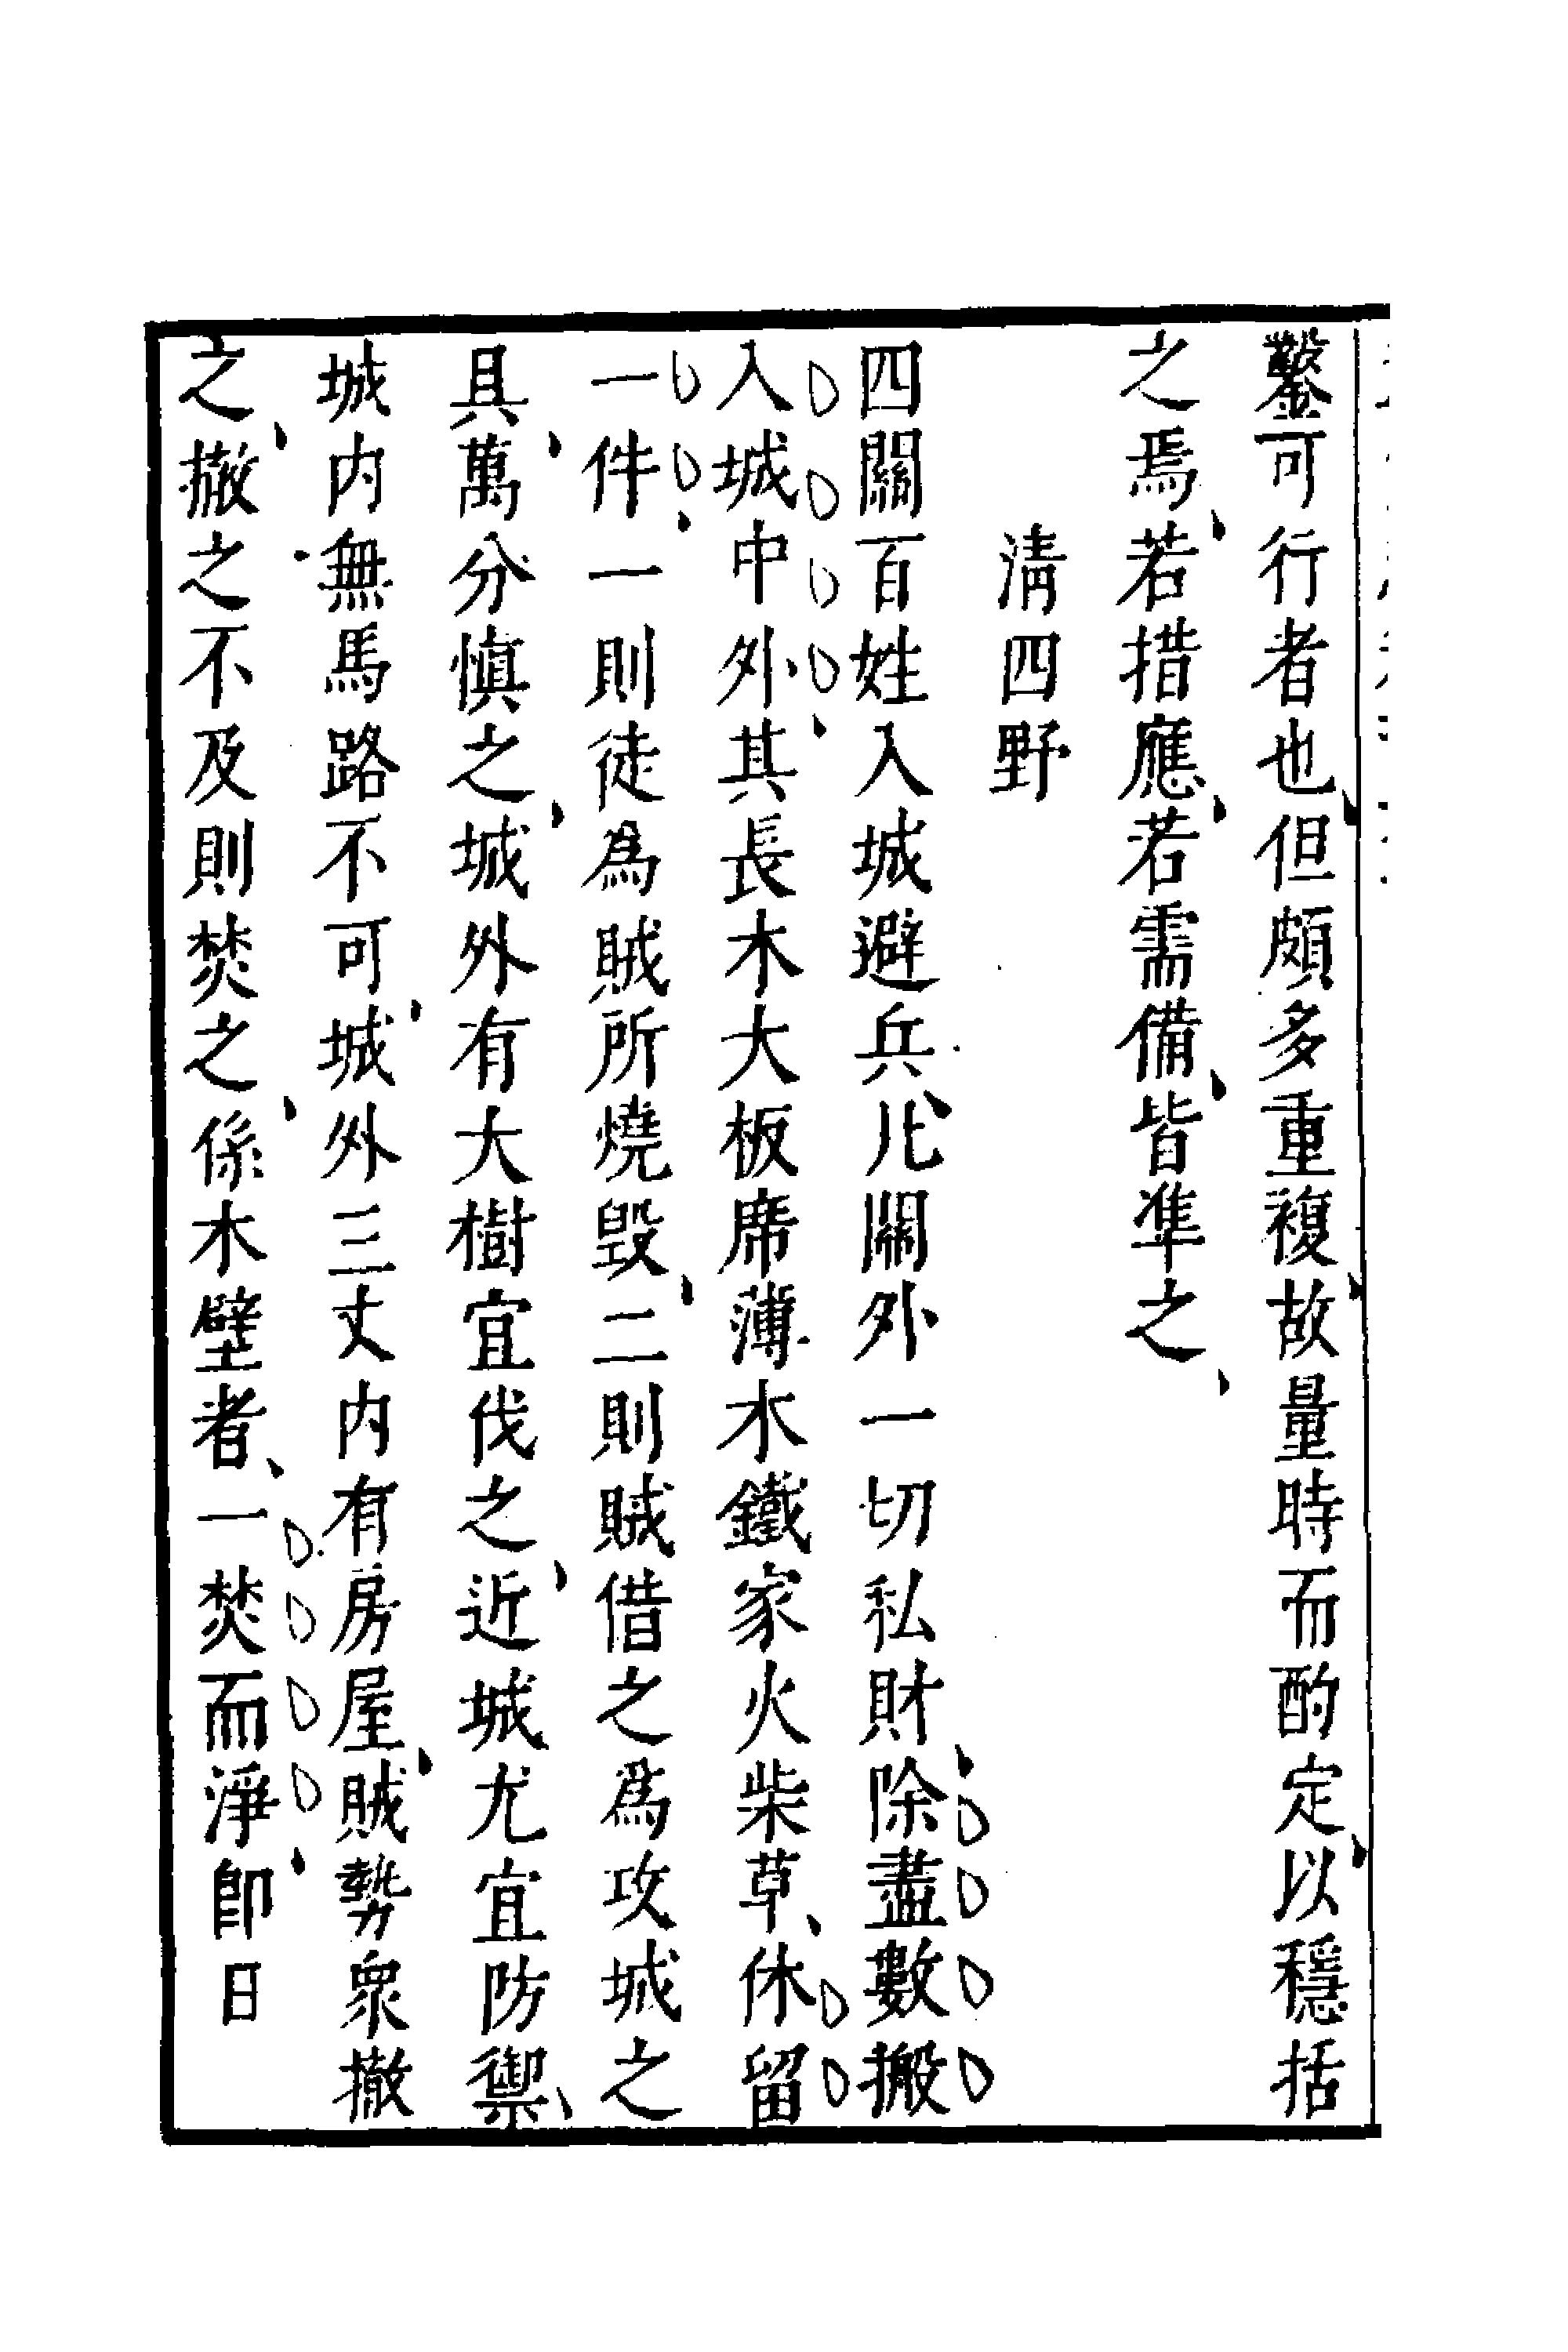 鑿可行者也但頗多重複故量時而酌定以穩括
之焉若措應若需備皆準之
清四野
四關百姓入城避兵凡關外一切私財除盡數搬
入城中外其長木大板席薄木鐵家火柴草休留
一件一則徒為賊所燒毀二則賊借之為攻城之
具萬分慎之城外有大樹宜伐之近城尤宜防禦
城内無馬路不可城外三丈内有房屋賊勢衆撤
之撤之不及則焚之係木壁者一焚而淨即日